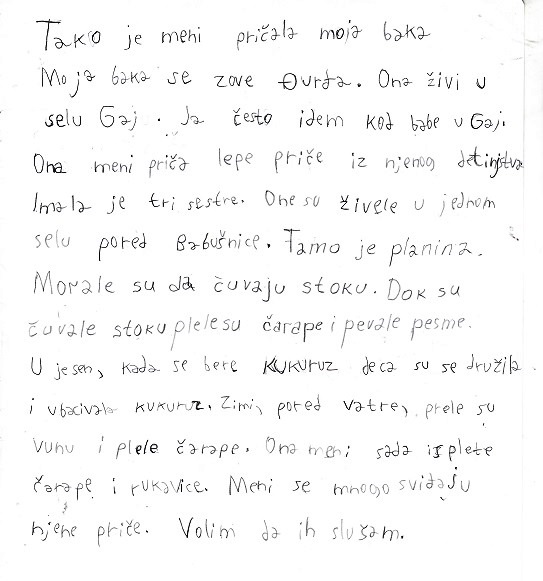 Tako je meni pričala moja baka
Moja baka se zove Đurđa. Ona živi u
selu Gaj. Ja često idem kod babe u Gaj.
Ona meni priča lepe priče iz njenog detinjstva
Imala je tri sestre. One su živele u jednom
selu pored Babušnice. Tamo je planina.
Morale su da čuvaju stoku. Dok su
čuvale stoku plele su čarape i pevale pesme.
U jesen, kada se bere kukuruz deca su se družila
i ubacivala kukuruz. Zimi, pored vatre, prele su
vunu i plele čarape. Ona meni sada isplete
čarape i rukavice. Meni se mnogo sviđaju
njene priče. Volim da ih slušam.